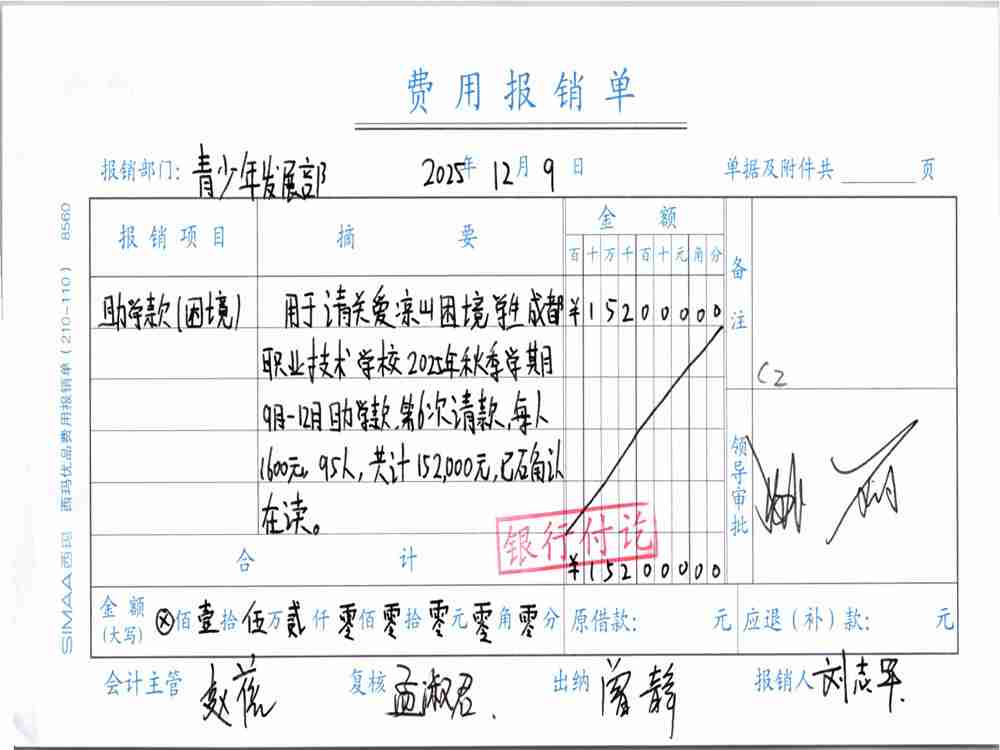 费用报销单
报销部门: 青少年发展部 2025年 12月 9日 单据及附件共 页
报销项目 摘要 金额 备注
百十万千百十元角分
助学款(困境) 用于请关爱凉山困境学生成都 ¥15200000
职业技术学校2025年秋季学期
9月-12月助学款,第6次请款,每人
1600元,95人,共计152,000元,已确认
在读。
C2
领导审批
银行付讫
合计 ¥15200000
金额(大写) ⊗佰壹拾伍万贰仟零佰零拾零元零角零分 原借款: 元 应退(补)款: 元
会计主管 复核 孟淑君. 出纳 曾静 报销人 刘志军
SIMAA西玛 西玛优品费用报销单(210-110) 8560